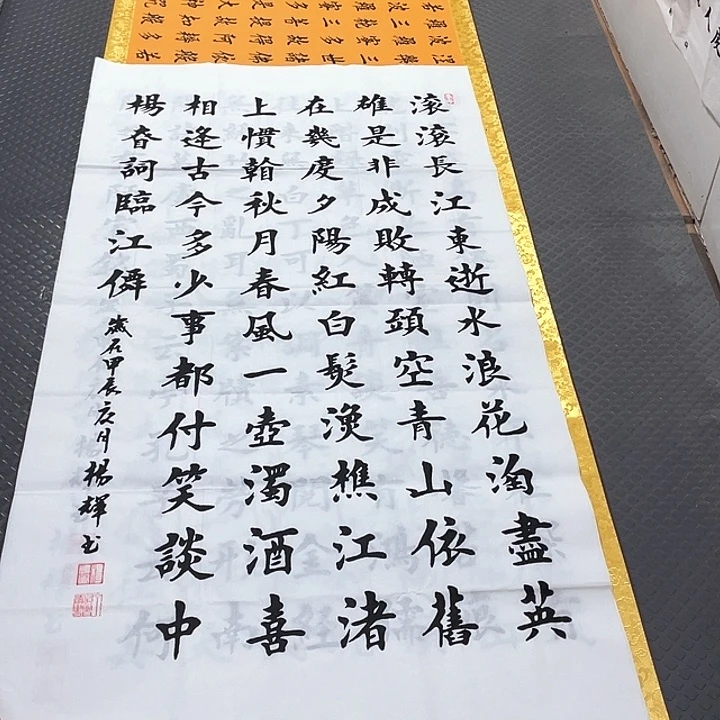 滚滚長江東逝水浪花淘盡英
雄是非成敗轉頭空青山依舊
在幾度夕陽紅白髮漁樵江渚
上慣看秋月春風一壺濁酒喜
相逢古今多少事都付笑談中
楊眘詞臨江僊
歲在甲辰月楊輝書